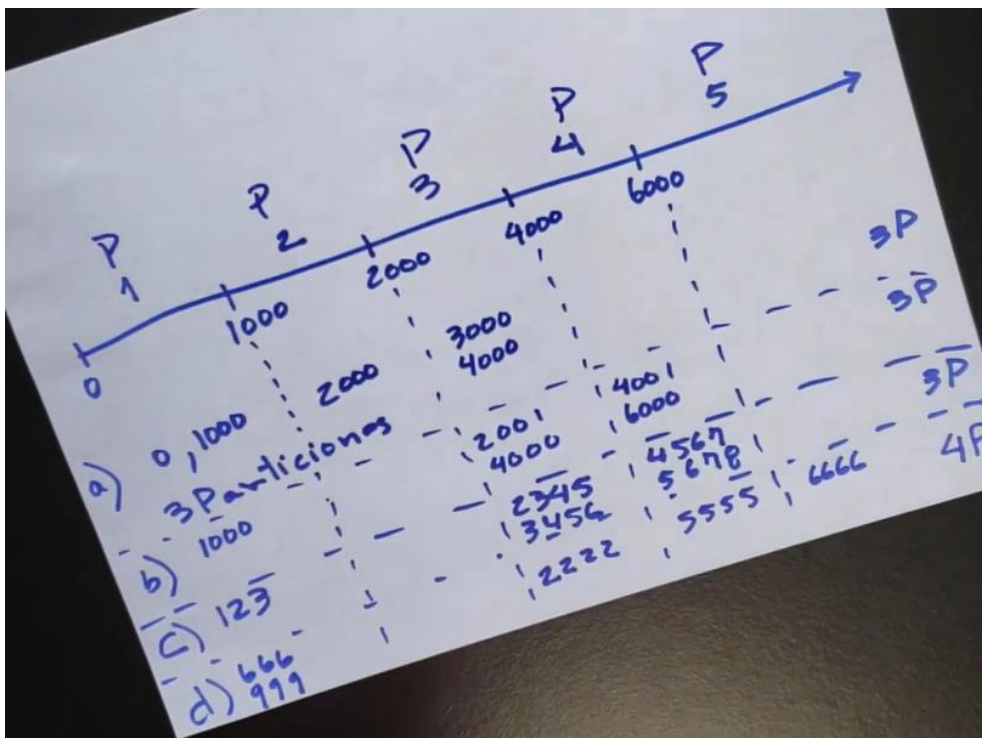 P 1 P 2 P 3 P 4 P 5
0 1000 2000 4000 6000
a) 0, 1000 2000 3000 4000 3P
3 Particiones
b) 1000 2001 4000 4001 6000 3P
c) 123 2345 3456 4567 5678 3P
d) 666 999 2222 5555 6666 4P